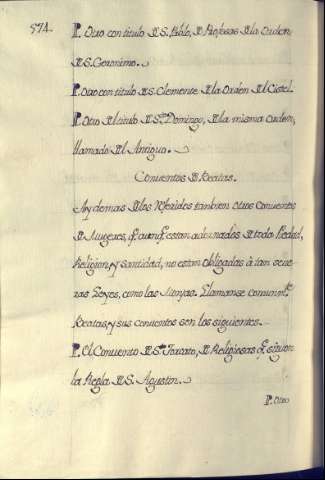 574.
P. Otro con titulo de S. Pablo, de Profesas de la Orden
de S. Geronimo.
P. Otro con titulo de S. Clemente de la Orden del Cistel.
P. Otro del titulo de Sto. Domingo, de la misma Orden,
llamado el Antiguo.
Conventos de Beatas.
Ay demas de los referidos tambien otros Conventos
de Mugeres, q. aunq. estan adornados de toda Piedad,
Religion, y Santidad, no estan obligadas à tan seve-
ras Leyes, como las Monjas. Llamanse comunmte.
Beatas, y sus conventos son los siguientes.
P. El Convento de Sto. Torcato, de Religiosas q. siguen
la Regla de S. Agustin.
P. Otro